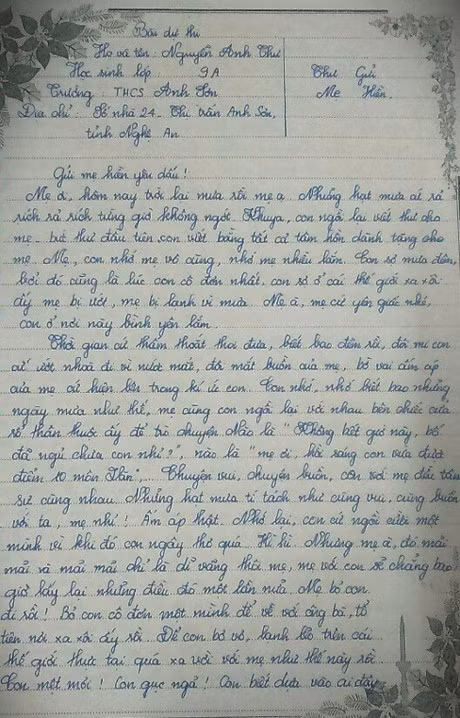 Bài dự thi
Họ và tên: Nguyễn Anh Thư
Học sinh lớp: 9A
Trường: THCS Anh Sơn
Địa chỉ: Số nhà 24 - Thị trấn Anh Sơn,
tỉnh Nghệ An
Thư Gửi
Mẹ Hiền
Gửi mẹ hiền yêu dấu!
Mẹ ơi, hôm nay trời lại mưa rồi mẹ ạ. Những hạt mưa cứ rả
rích rả rích từng giờ không ngớt. Khuya, con ngồi lại viết thư cho
mẹ - bức thư đầu tiên con viết bằng tất cả tâm hồn dành tặng cho
mẹ. Mẹ, con nhớ mẹ vô cùng, nhớ mẹ nhiều lắm. Con sợ mưa đêm,
bởi đó cũng là lúc con cô đơn nhất, con sợ ở cái thế giới xa xôi
ấy mẹ bị ướt, mẹ bị lạnh vì mưa. Mẹ à, mẹ cứ yên giấc nhé,
con ở nơi này bình yên lắm.
Thời gian cứ thấm thoắt thoi đưa, biết bao đêm rồi, đôi mi con
cứ ướt nhoà đi vì nước mắt, đôi mắt buồn của mẹ, bờ vai ấm áp
của mẹ cứ hiện lên trong kí ức con. Con nhớ, nhớ biết bao những
ngày mưa như thế, mẹ cùng con ngồi lại với nhau bên chiếc cửa
sổ thân thuộc ấy để trò chuyện. Nào là "Không biết giờ này, bố
đã ngủ chưa con nhỉ?", nào là "mẹ ơi, hồi sáng con vừa được
điểm 10 môn Văn"... Chuyện vui, chuyện buồn, con với mẹ đều tâm
sự cùng nhau. Những hạt mưa tí tách như cùng vui, cùng buồn
với ta, mẹ nhỉ! Ấm áp thật. Nhớ lại, con cứ ngồi cười một
mình vì khi đó con ngây thơ quá. Hì hì. Nhưng mẹ à, đó mãi
mãi và mãi mãi chỉ là dĩ vãng thôi mẹ, mẹ với con sẽ chẳng bao
giờ lấy lại những điều đó một lần nữa. Mẹ bỏ con
đi rồi! Bỏ con cô đơn một mình để về với ông bà, tổ
tiên nơi xa xôi ấy rồi. Để con bơ vơ, lạnh lẽo trên cái
thế giới thực tại quá xa vời với mẹ như thế này rồi.
Con mệt mỏi! Con gục ngã! Con biết dựa vào ai đây